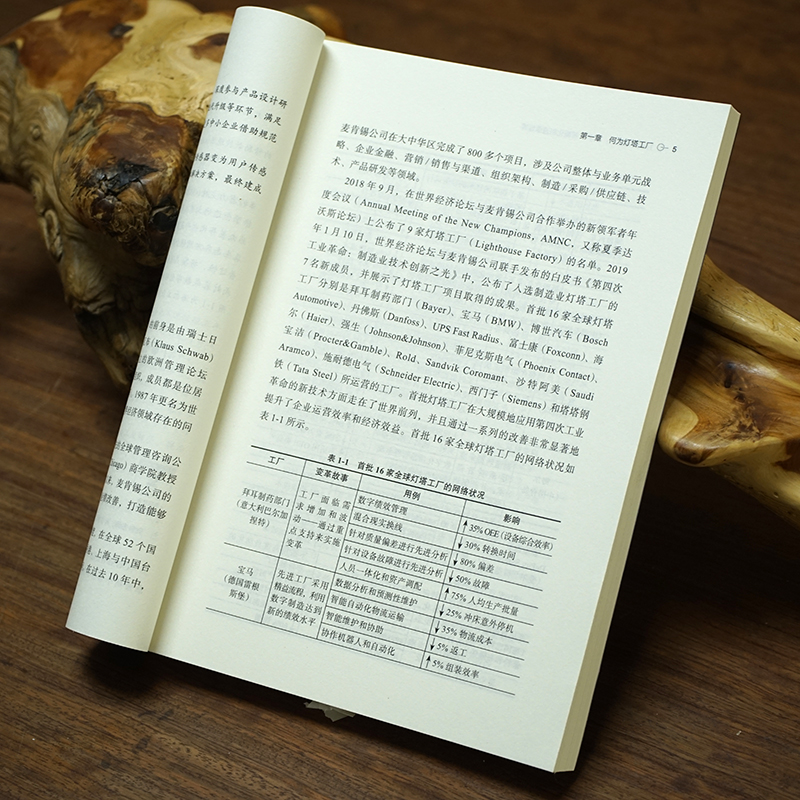 度参与产品设计研
升级等环节，满足
中小企业借助规范
感器变为用户传感
决方案，最终建成
前身是由瑞士日
（Klaus Schwab）
欧洲管理论坛
成员都是位居
1987 年更名为世
经济领域存在的问
全球管理咨询公
cago）商学院教授
麦肯锡公司的
改善，打造能够
在全球 52 个国
上海与中国台
在过去 10 年中，
第一章 何为灯塔工厂 5
麦肯锡公司在大中华区完成了 800 多个项目，涉及公司整体与业务单元战
略、企业金融、营销/销售与渠道、组织架构、制造/采购/供应链、技
术、产品研发等领域。
2018 年 9 月，在世界经济论坛与麦肯锡公司合作举办的新领军者年
度会议（Annual Meeting of the New Champions，AMNC，又称夏季达
沃斯论坛）上公布了 9 家灯塔工厂（Lighthouse Factory）的名单。2019
年 1 月 10 日，世界经济论坛与麦肯锡公司联手发布的白皮书《第四次
工业革命：制造业技术创新之光》中，公布了入选制造业灯塔工厂的
7 名新成员，并展示了灯塔工厂项目取得的成果。首批 16 家全球灯塔
工厂分别是拜耳制药部门（Bayer）、宝马（BMW）、博世汽车（Bosch
Automotive）、丹佛斯（Danfoss）、UPS Fast Radius、富士康（Foxconn）、海
尔（Haier）、强生（Johnson&Johnson）、菲尼克斯电气（Phoenix Contact）、
宝洁（Procter&Gamble）、Rold、Sandvik Coromant、沙特阿美（Saudi
Aramco）、施耐德电气（Schneider Electric）、西门子（Siemens）和塔塔钢
铁（Tata Steel）所运营的工厂。首批灯塔工厂在大规模地应用第四次工业
革命的新技术方面走在了世界前列，并且通过一系列的改善非常显著地
提升了企业运营效率和经济效益。首批 16 家全球灯塔工厂的网络状况如
表 1-1 所示。
表 1-1 首批 16 家全球灯塔工厂的网络状况
工厂 变革故事 用例 影响
拜耳制药部门
（意大利巴尔加
捏特）
工厂面临需
求增加和波
动——通过重
点支持来实施
变革
数字绩效管理 ↑35% OEE（设备综合效率）
混合现实换线 ↓30% 转换时间
针对质量偏差进行先进分析 ↓80% 偏差
针对设备故障进行先进分析 ↓50% 故障
人员一体化和资产调配 ↑75% 人均生产批量
宝马
（德国雷根
斯堡）
先进工厂采用
精益流程，利用
数字制造达到
新的绩效水平
数据分析和预测性维护 ↓25% 冲床意外停机
智能自动化物流运输 ↓35% 物流成本
智能维护和协助 ↓5% 返工
协作机器人和自动化 ↑5% 组装效率